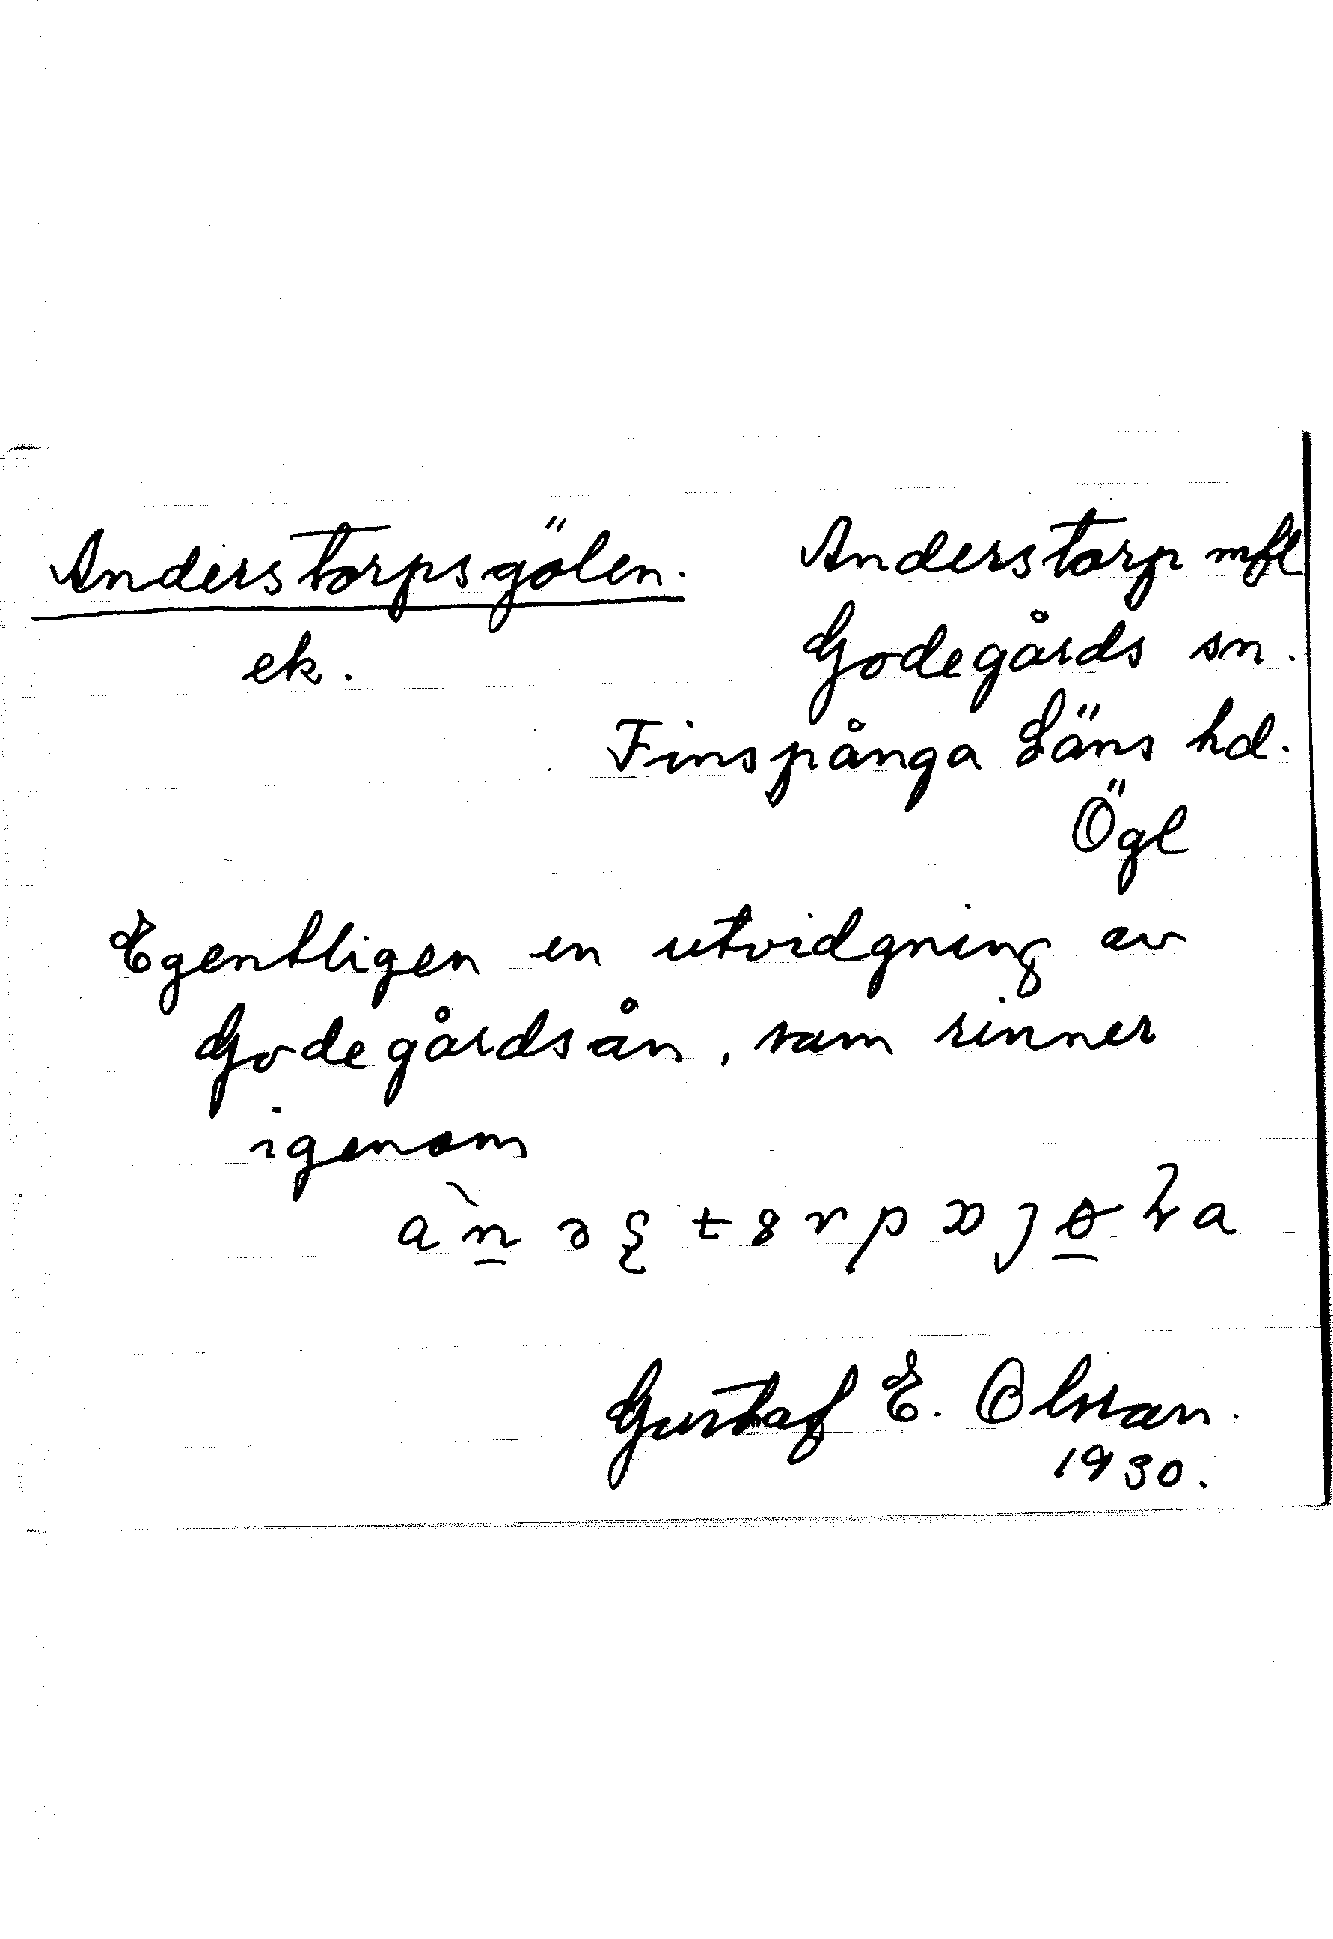 Anderstorpsgölen. Anderstorp mfl
ek. Godegårds sn.
Finspånga Läns hd.
Ögl
Egentligen en utvidgning av
Godegårdsån, som rinner
igenom
Gustaf E. Olsson.
1930.